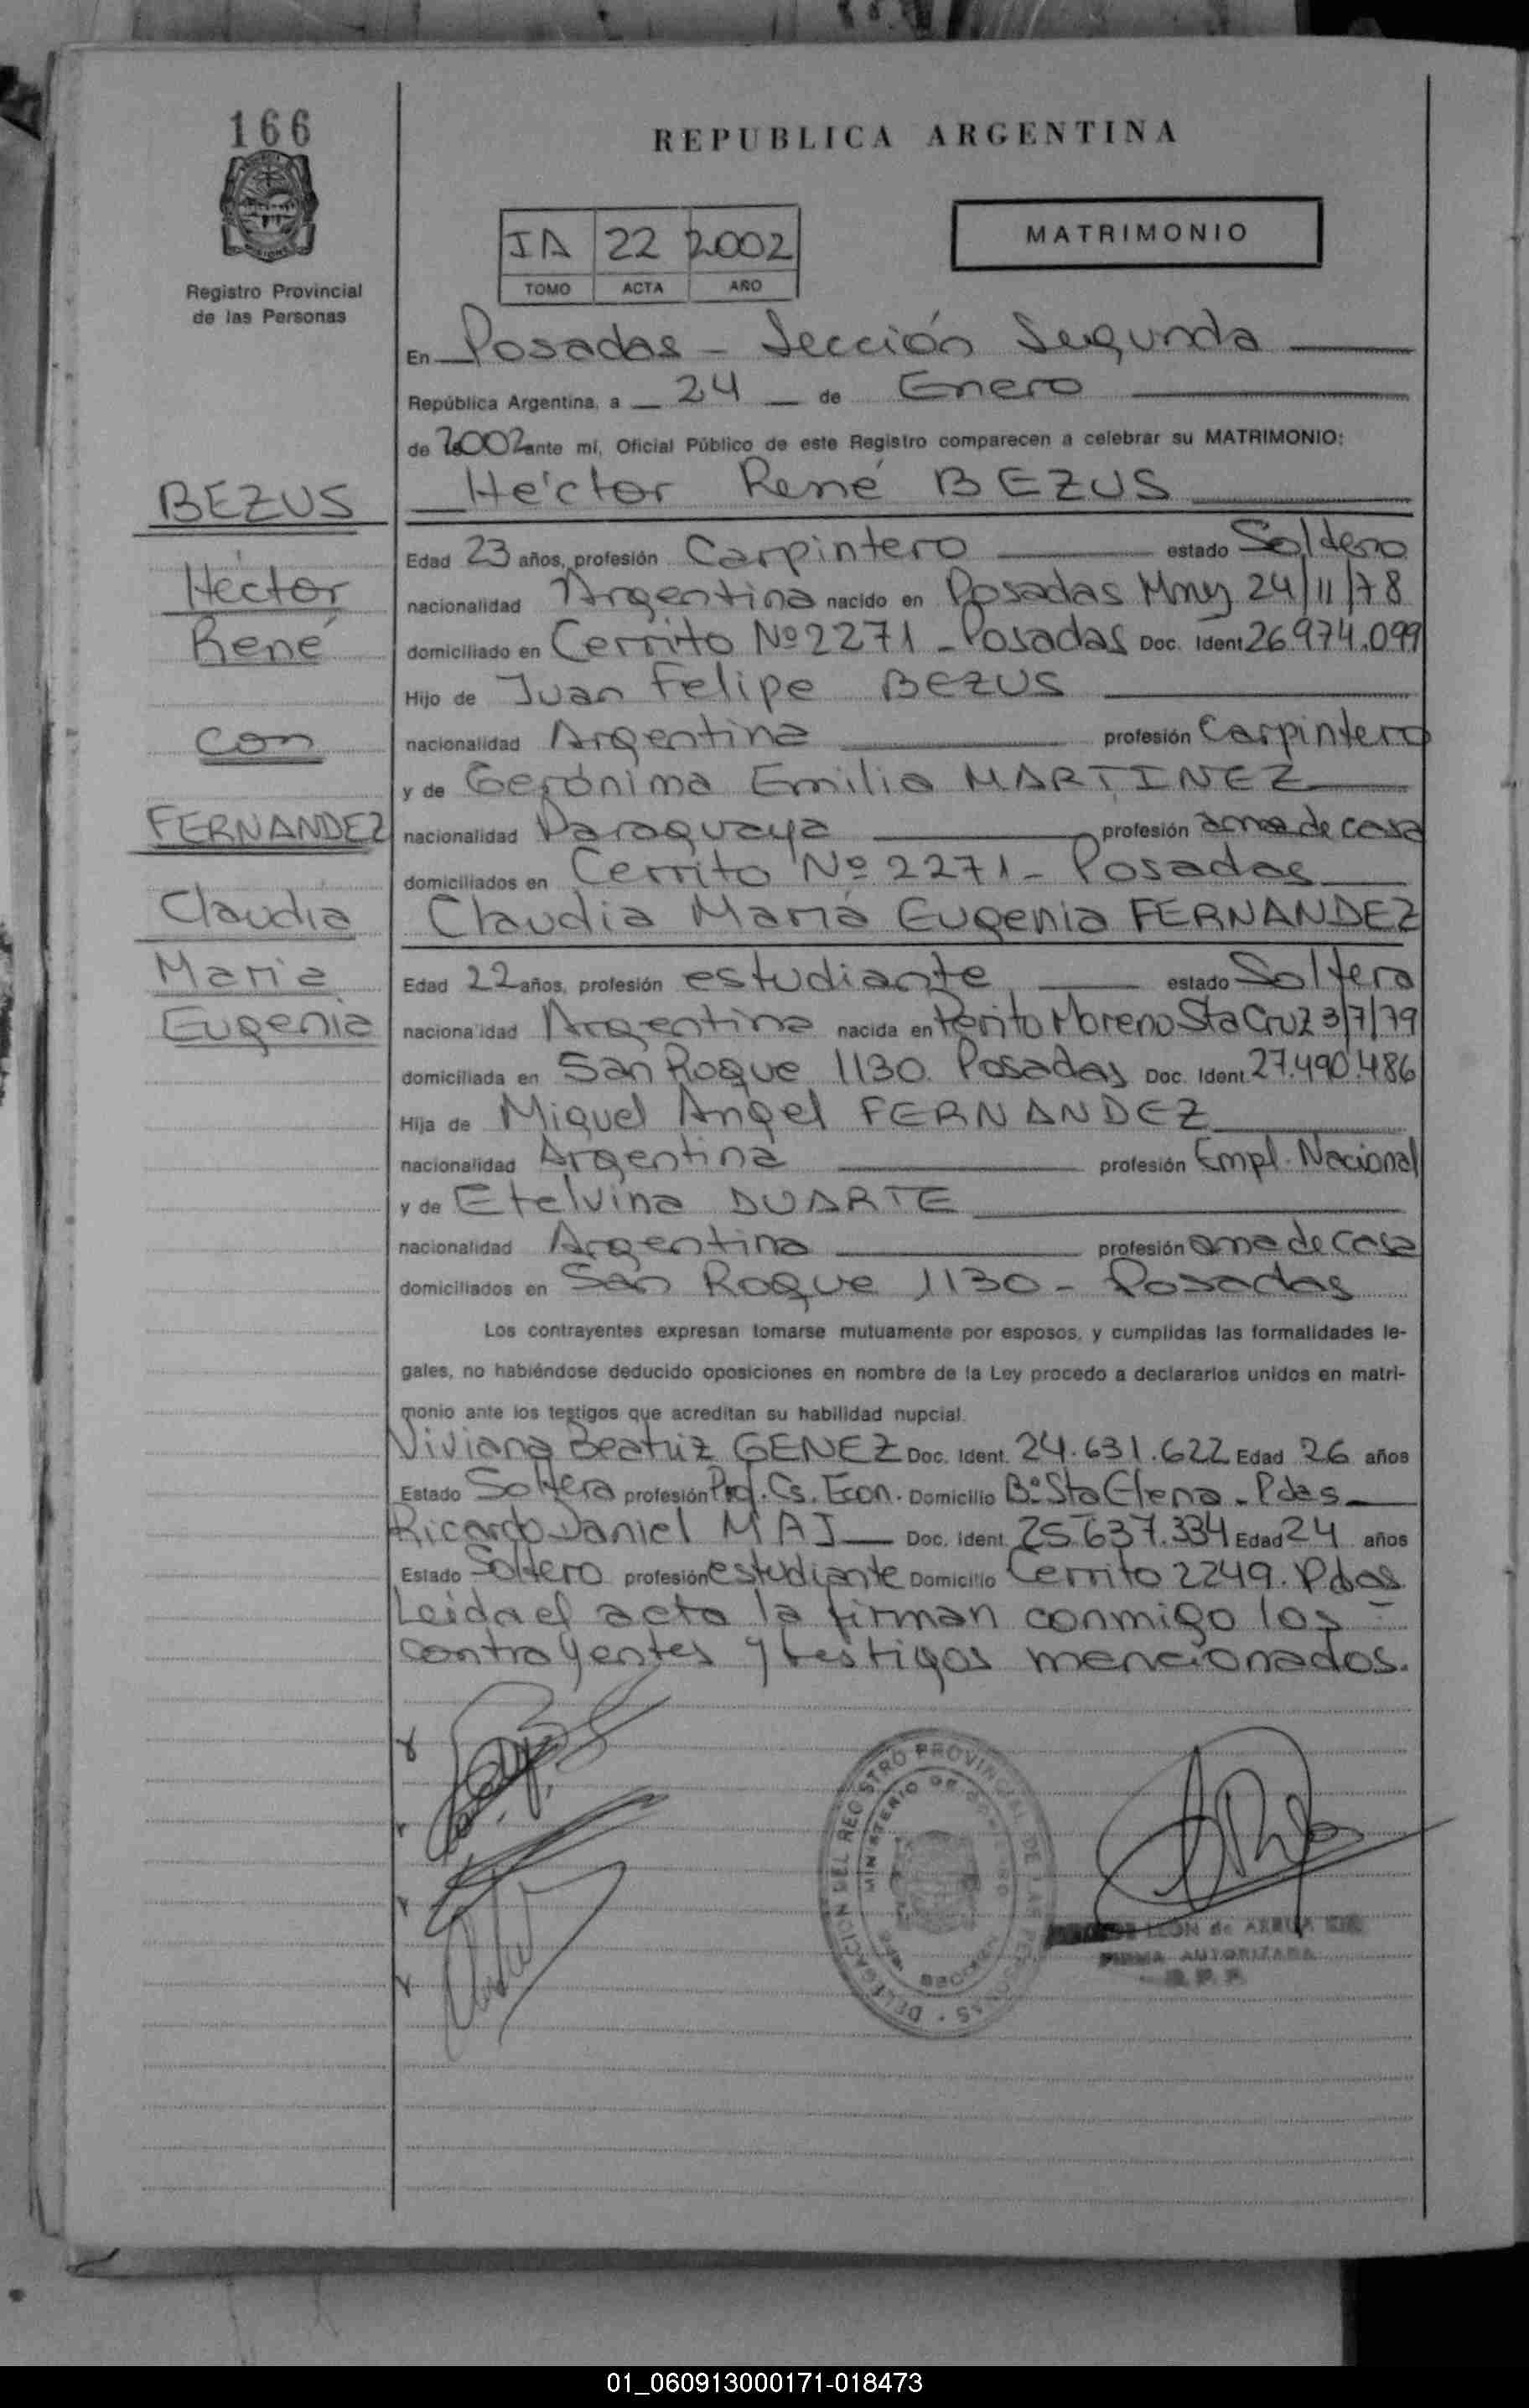 166
REPUBLICA ARGENTINA
MATRIMONIO
IA 22 2002
TOMO ACTA AÑO
Registro Provincial
de las Personas
En Posadas - Sección Segunda
República Argentina, a 24 de Enero
de 2002 ante mí, Oficial Público de este Registro comparecen a celebrar su MATRIMONIO:
Héctor René BEZUS
BEZUS
Héctor
René
con
FERNANDEZ
Claudia
Maria
Eugenia
Edad 23 años, profesión Carpintero estado Soltero
nacionalidad Argentina nacido en Posadas Mnes 24/11/78
domiciliado en Cerrito Nº 2271 - Posadas Doc. Ident 26.974.099
Hijo de Juan Felipe BEZUS
nacionalidad Argentina profesión Carpintero
y de Gerónima Emilia MARTINEZ
nacionalidad Paraguaya profesión ama de casa
domiciliados en Cerrito Nº 2271 - Posadas
Claudia María Eugenia FERNANDEZ
Edad 22 años, profesión estudiante estado Soltera
nacionalidad Argentina nacida en Perito Moreno Sta Cruz 3/7/79
domiciliada en San Roque 1130. Posadas Doc. Ident. 27.490.486
Hija de Miguel Angel FERNANDEZ
nacionalidad Argentina profesión Empl. Nacional
y de Etelvina DUARTE
nacionalidad Argentina profesión ama de casa
domiciliados en San Roque 1130 - Posadas
Los contrayentes expresan tomarse mutuamente por esposos, y cumplidas las formalidades le-
gales, no habiéndose deducido oposiciones en nombre de la Ley procedo a declararlos unidos en matri-
monio ante los testigos que acreditan su habilidad nupcial.
Viviana Beatriz GENEZ Doc. Ident. 24.631.622 Edad 26 años
Estado Soltera profesión Prof. Cs. Econ. Domicilio Bº Sta Elena - Pdas
Ricardo Daniel MAJ Doc. Ident. 25.637.334 Edad 24 años
Estado Soltero profesión estudiante Domicilio Cerrito 2249. Pdas
Leida el acta la firman conmigo los
contrayentes y testigos mencionados.
DELEGACION DEL REGISTRO PROVINCIAL DE LAS PERSONAS
MINISTERIO DE GOBIERNO
MISIONES
LEON de
FIRMA AUTORIZADA
01_060913000171-018473